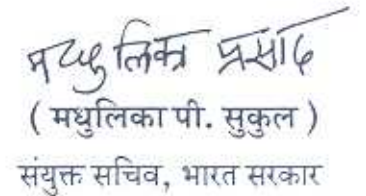 मधुलिका प्रसाद
( मधुलिका पी. सुकुल )
संयुक्त सचिव, भारत सरकार